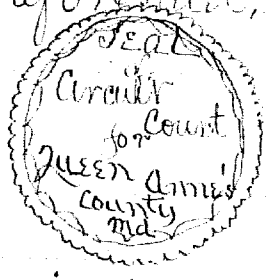 Seal
Circuit
Court
for
Queen Anne's
County
Md.